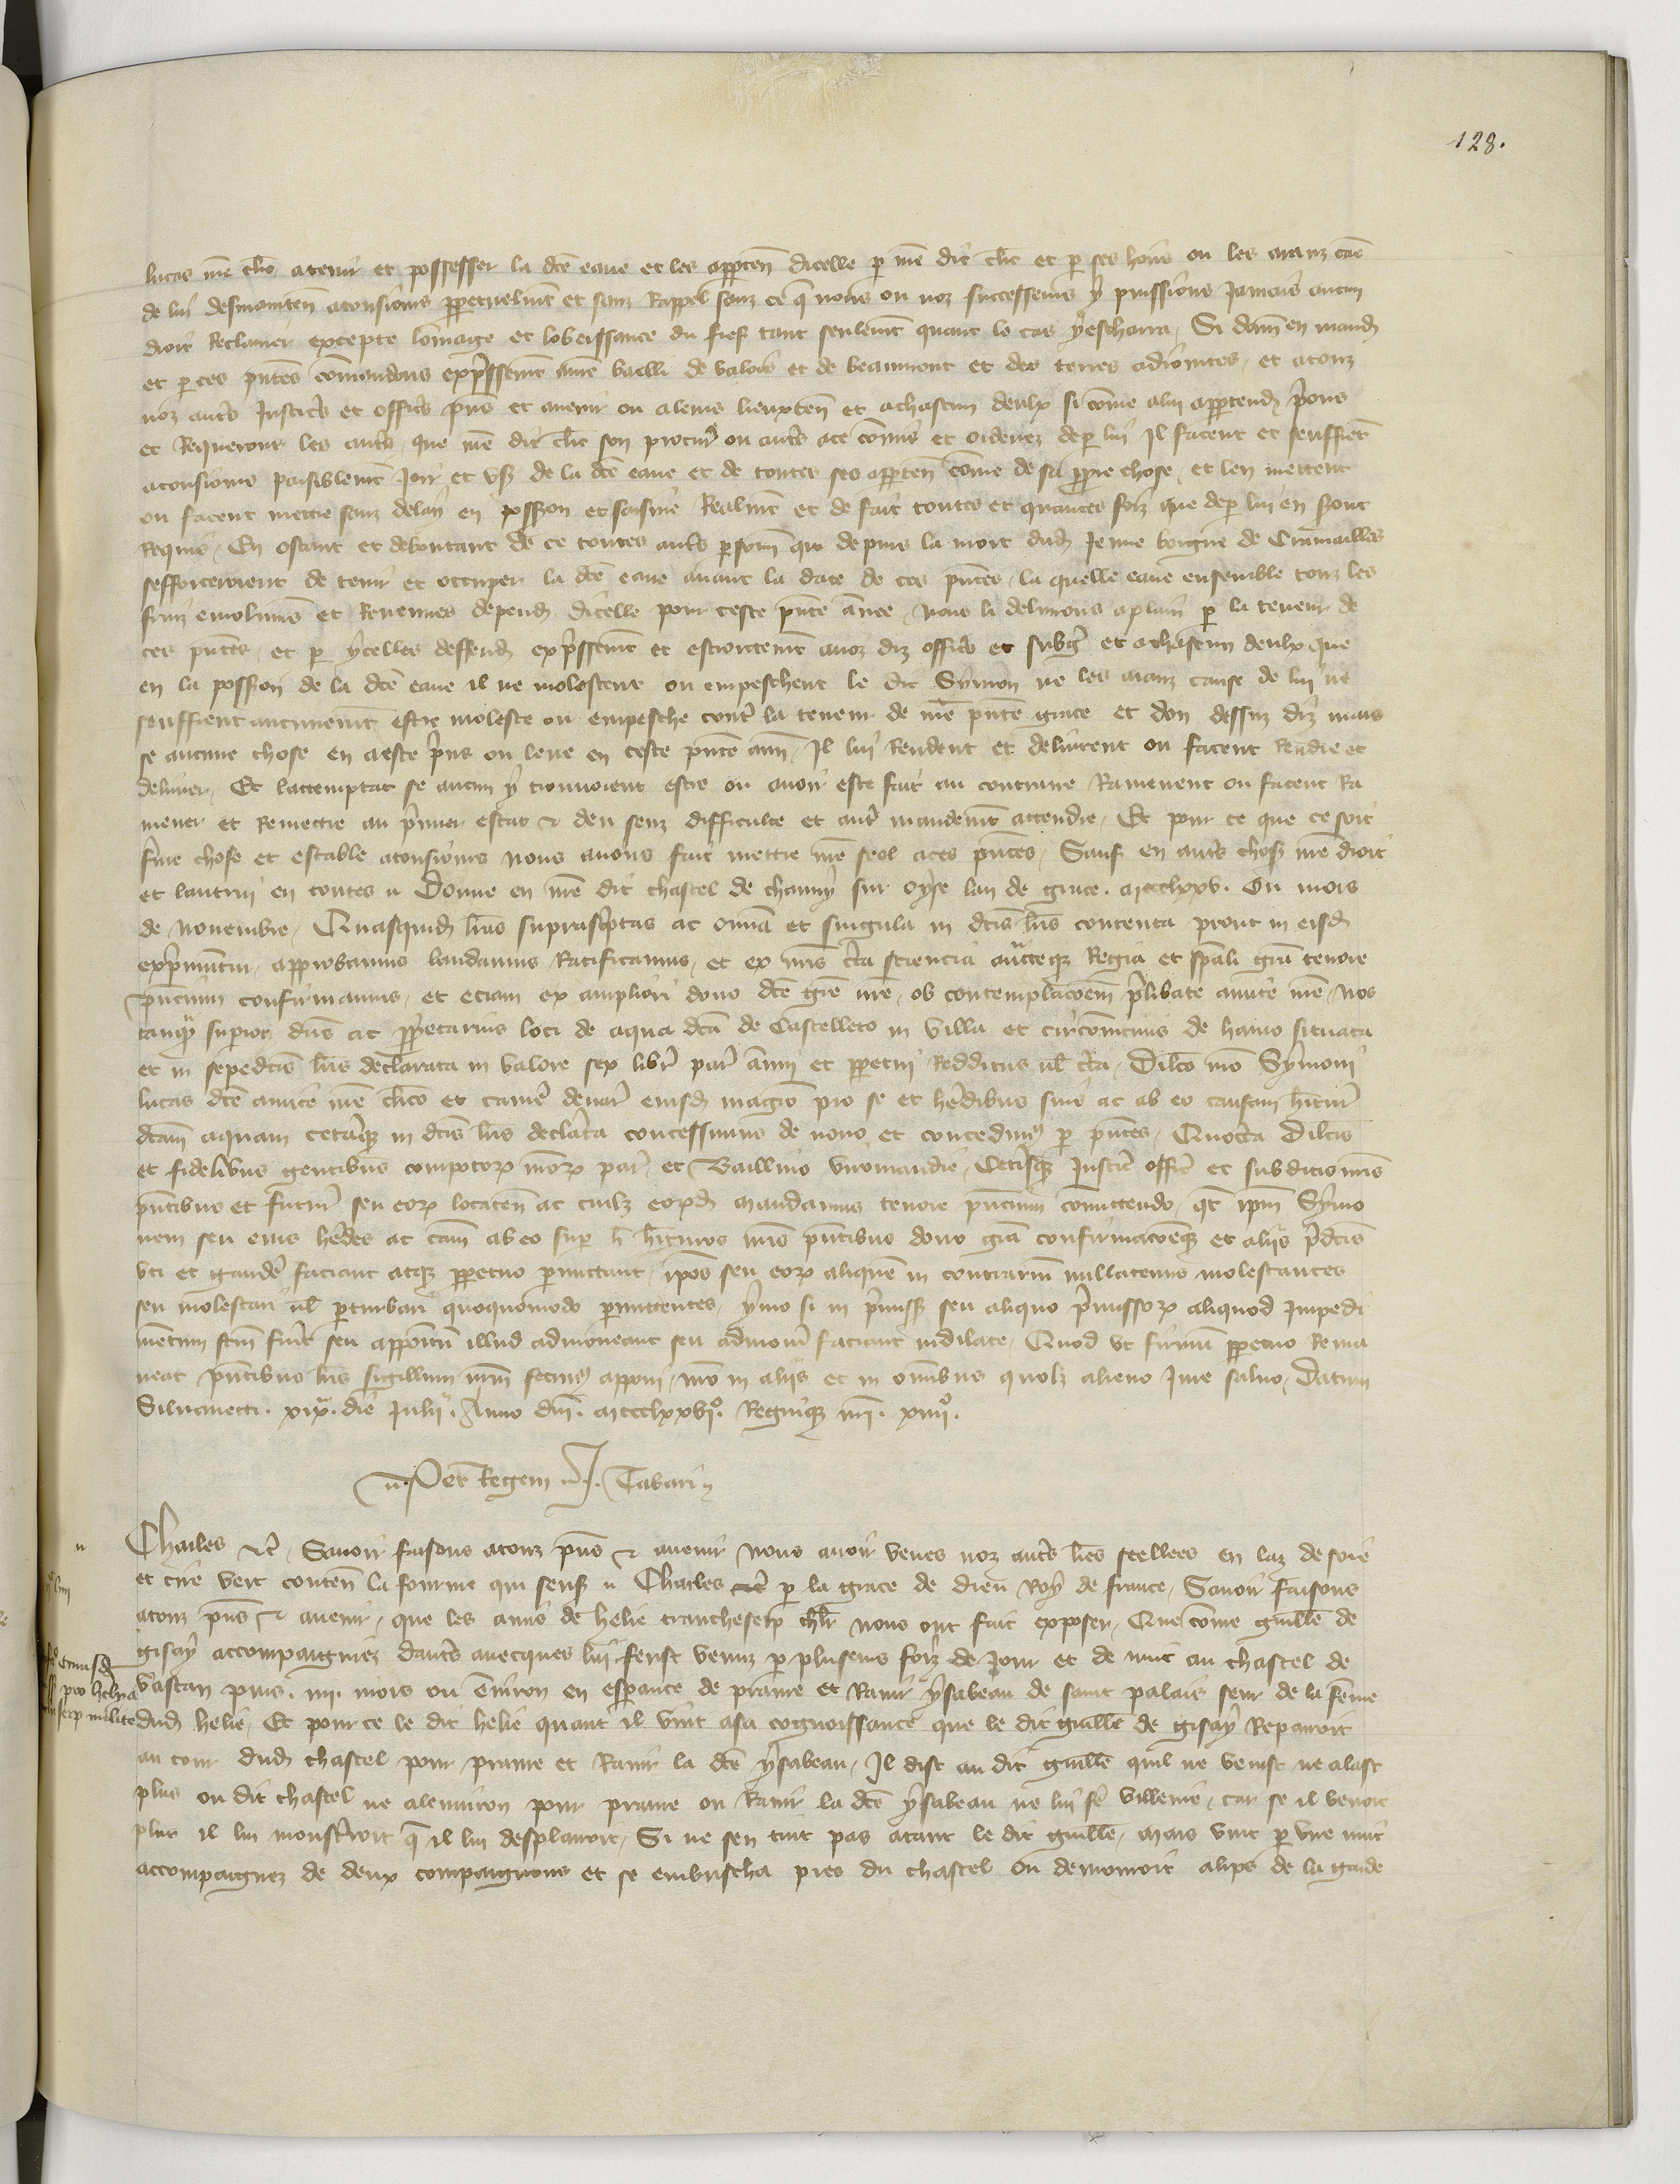 128.
lucas nr̃e clerc a tenir et possesser la dc̃e eaue et les apparten̄ dicelle p̱ nr̃e dit clerc et p̱ ses hoirs ou les aianz cãe
de lui desmainten̄ a tousiours ppetuelmt et sanz rappel sanz ce q̃ nous ou noz successeurs y puissions jamais aucun
droit reclamer excepte lomaige et lobeissance du fief tant seulemt quant le cas y escharra, Si donñ en mand̃
et p̱ ces pñtes commandons expressemt a nr̃e bailli de valois et de beaumont et des terres adiointes, et a touz
noz autr̃s justicr̃s et officr̃s pñs et auenir ou a leurs lieuxten̄ et a chascun deulx si comme a lui appartendr̃ prions
et requerons les autr̃s, que nr̃e dit clerc son procur̃ ou autr̃s a ce commis et ordenez de p̱ lui Il facent et seuffrent
a tousiours paisiblemt joir et us̃ de la dc̃e eaue et de toutes ses apparten̄ comme de sa ppre chose, et len mettent
ou facent mettre sanz delay en possession et saisine realmt et de fait toutes et quantes foiz que de p̱ lui en seront
requis, En ostant et deboutant de ce toutes autr̃s p̱sonñ qui depuis la mort dud̃ jenne borgne de Cramailles
sefforceroient de tenir et occuper la dc̃e eaue auant la date de ces pñtes, la quelle eaue ensemble touz les
fruiz emolumẽs et reuenues depend̃ dicelle pour ceste pñte annee, nous li deliurons a plain p̱ la teneur de
ces pñtes, et p̱ ycelles deffend̃ expressemt et estroitement a noz diz officr̃s et subgz̃ et a chascun deulx que
en la possession de la dc̃e eaue il ne molestent ou empeschent le dit Symon ne les aianz cause de lui ne
seuffrent aucunemt estre moleste ou empesche contr̃ la teneur de nr̃e pñte grace et don dessus diz mais
se aucune chose en a este prins ou leue en ceste pñte anñ, Il lui rendent et deliurent ou facent rendre et
deliurer, Et lattemptat se aucun y trouuoient estre ou auoir este fait au contraire ramenent ou facent ra
mener et remettre au premier estat & deu senz difficulte et autr̃ mandemt attendre, Et pour ce que ce soit
ferme chose et estable a tousiours nous auons fait mettre nr̃e seel a ces pñtes, Sauf en autr̃s choses nr̃e droit
et lautrui en toutes, Donne en nr̃e dit chastel de chauny sur oyse lan de grace mccclxxv. Ou mois
de nouembre, Quasquid̃ lr̃as suprascriptas ac omnia et singula in dcĩs lr̃is contenta prout in eisd̃
exprimuntur, approbamus laudamus ratificamus, et ex nr̃is certa sciencia auctteqz regia et spãli grã tenore
pñcium confirmamus, et eciam ex ampliori dono dcẽ grẽ nr̃e, ob contemplacõem p̃libate amite nr̃e, nos
tanqz superior dñs ac ppetarius loci de aqua dcã de Castelleto in villa et circõuicinis de hamo situata
et in sepedcĩs lr̃is declarata in valore sex libr̃ par̃ annui et ppetui redditus ul̃ circa, Dilcõ nr̃o Symoni
lucas dcẽ amite nr̃e cl̃ico et camer̃ denar̃ eiusd̃ magrõ pro se et heredibus suis ac ab eo causam hitur̃
dcãm aquam ceteraqz in dcĩs lr̃is declarata concessimus de nouo et concedimus p̱ pñtes, Quocirca dilcĩs
et fidelibus gentibus compotorꝝ nr̃orꝝ par̃ et Bailliuo viromandie, Ceterisqz justic̃ offic̃ et subditis nr̃is
pñtibus et futur̃ seu eorꝝ locaten̄ ac cuilz eorꝝd̃ mandamus tenore pñcium committendo, qt ip̃m Symo
nem seu eius heredes ac cam̃ ab eo super h̃ hituros nr̃is pñtibus dono grã confirmacõeqz et aliis p̃dcĩs
uti et gaudere faciant atqz ppetuo p̱mittant, ip̃os seu eorꝝ aliquem in contrarium nullatenus molestantes
seu molestari ul̃ p̱turbari quoquomodo p̱mittentes, ymo si in p̃missis seu aliquo p̃missorꝝ aliquod impedi
mentum fcm̃ fuerit seu appositum illud admoueant seu admoueri faciant indilate, Quod ut firmum ppetuo rema
neat, pñtibus lr̃is sigillum nr̃m fecimus apponi, nr̃o in aliis et in omnibus quolz alieno jure saluo, Datum
Siluanecti. xixa. die Julii. Anno dñi. mccclxxvio. Regniqz nr̃i. xiiio.
Per Regem J. Tabari
Charles &c̃, Sauoir faisons a touz pñs & auenir nous auoir veues noz autr̃s lr̃es seellees en laz de soie
et cire vert conten̄ la fourme qui sens̃ Charles &c̃ p̱ la grace de dieu Roy de france, Sauoir faisons
a touz pñs & auenir, que les amis de helie trancheserp chlr̃ nous ont fait exposer, Que comme guille de
gisay accompaigniez dautr̃s auecques lui feust venuz p̱ plusieurs foiz de jour et de nuit au chastel de
vastan puis. iiii. mois ou enuiron en esperance de praine et rauir ysabeau de saint palais seur de la femme
dud̃ helie, Et pour ce le dit helie quant il vint a sa cognoissance que le dit guille de gisay repairoit
au tour dud̃ chastel pour praine et rauir la dc̃e ysabeau, Il dist au dit guille quil ne venist ne alast
plus ou dit chastel ne alenuiron pour praine ou rauir la dc̃e ysabeau ne lui fẽ villenie, car se il venoit
plus il lui monstreroit q̃ il lui desplairoit, Si ne sen tint pas atant le dit guille, mais vint p̱ une nuit
accompaignez de deux compaignons et se embuscha pres du chastel ou demouroit alips de la garde
pro helya
serp milite